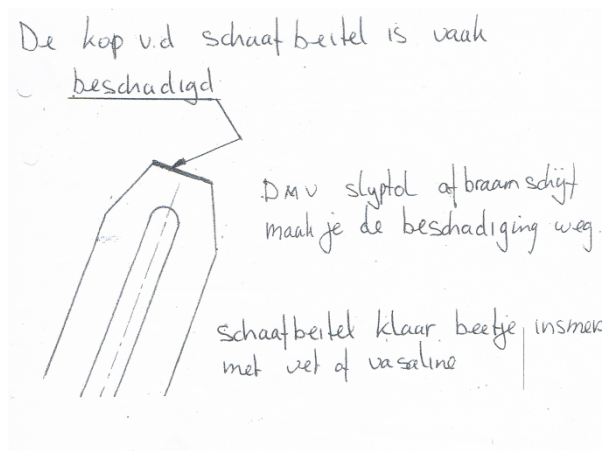 De kop v.d schaafbeitel is vaak
beschadigd
DMV slyptol of braamschijf
maak je de beschadiging weg.
schaafbeitel klaar beetje insmer
met vet of vasaline